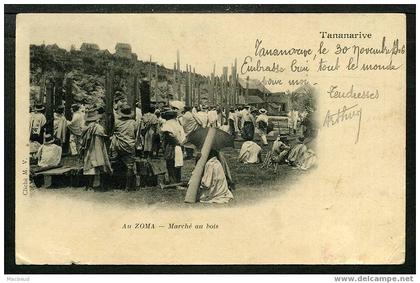 Tananarive
Tananarive, le 30 Novembre
Embrasse bien tout le monde
pour moi
Tendresses
Arthur
Cliché M. V.
Au ZOMA — Marché au bois
Macinaud
http://www.delcampe.net